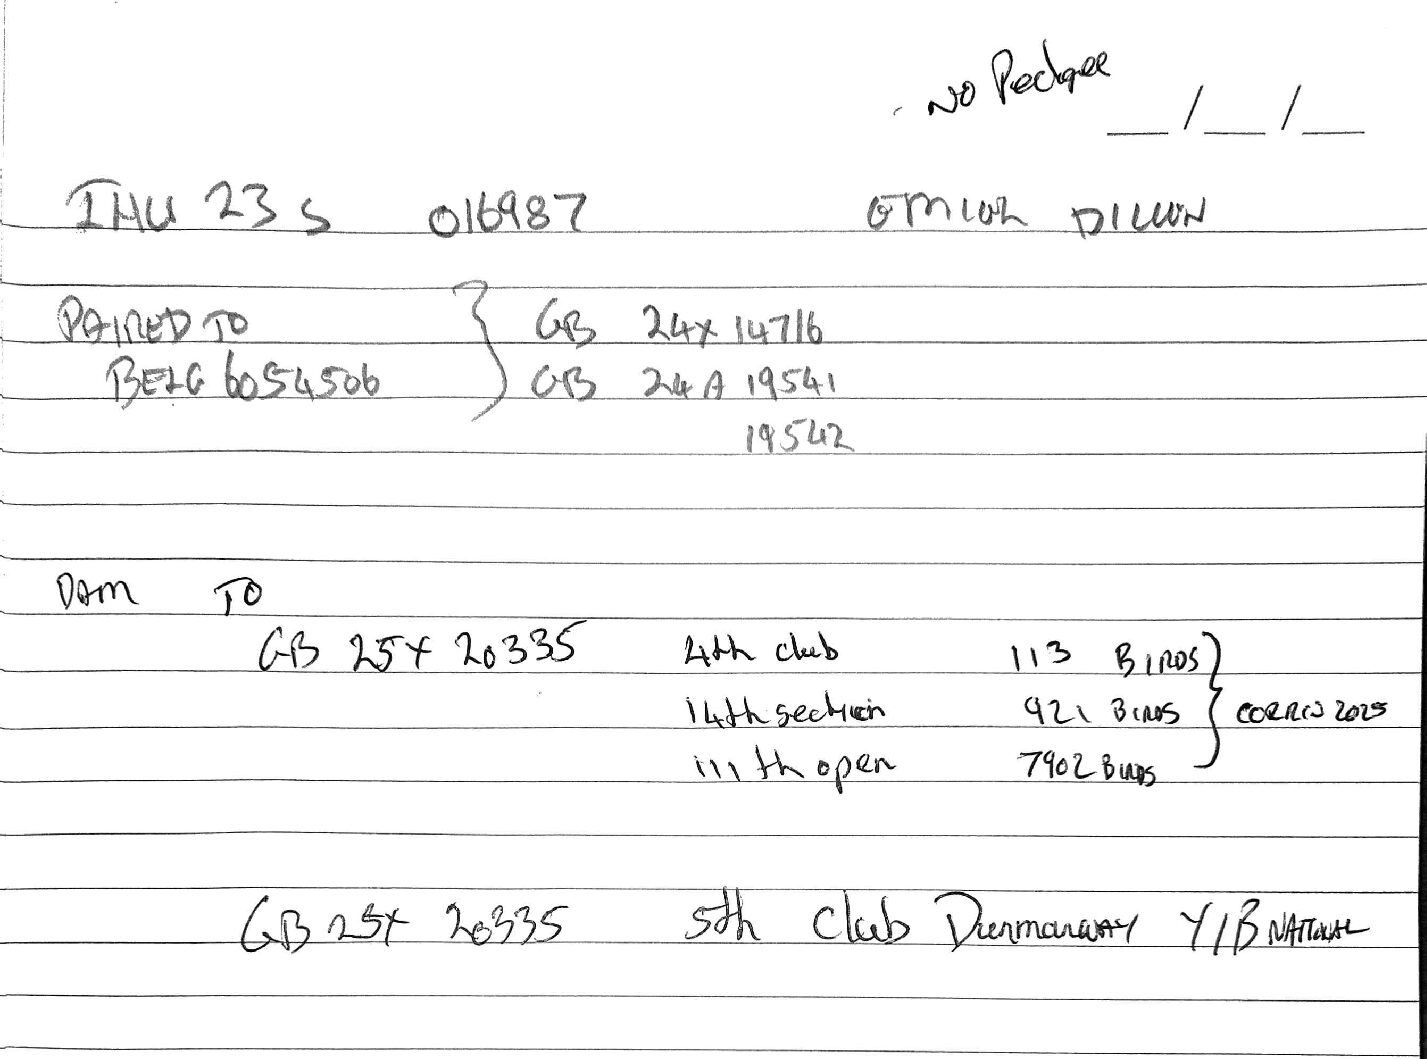 NO Pedgree
__/__/__
IHU 23 S 016987 DILLON
PAIRED TO } GB 24X 14716
BELG 6054506 GB 24A 19541
19542
DAM TO
GB 25X 20335 4th club 113 BIRDS }
14th section 921 BIRDS CORRIN 2025
111th open 7902 BIRDS
GB 25X 20335 5th Club Dunmanway Y/B NATIONAL